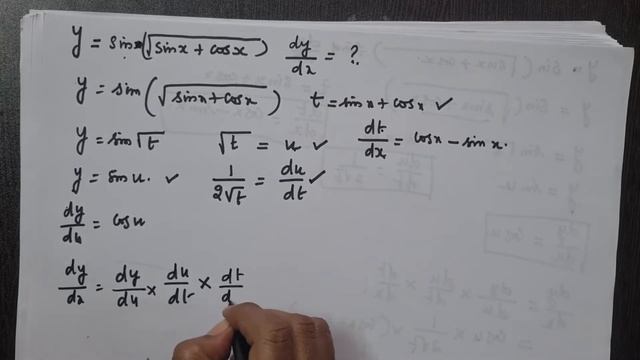 y = sinx(√sinx + cosx) dy/dx = ?
y = sin(√sinx + cosx) t = sinx + cosx ✓
y = sin√t √t = u ✓ dt/dx = cosx - sinx.
y = sinu. ✓ 1/2√t = du/dt ✓
dy/du = cosu
dy/dx = dy/du × du/dt × dt/d